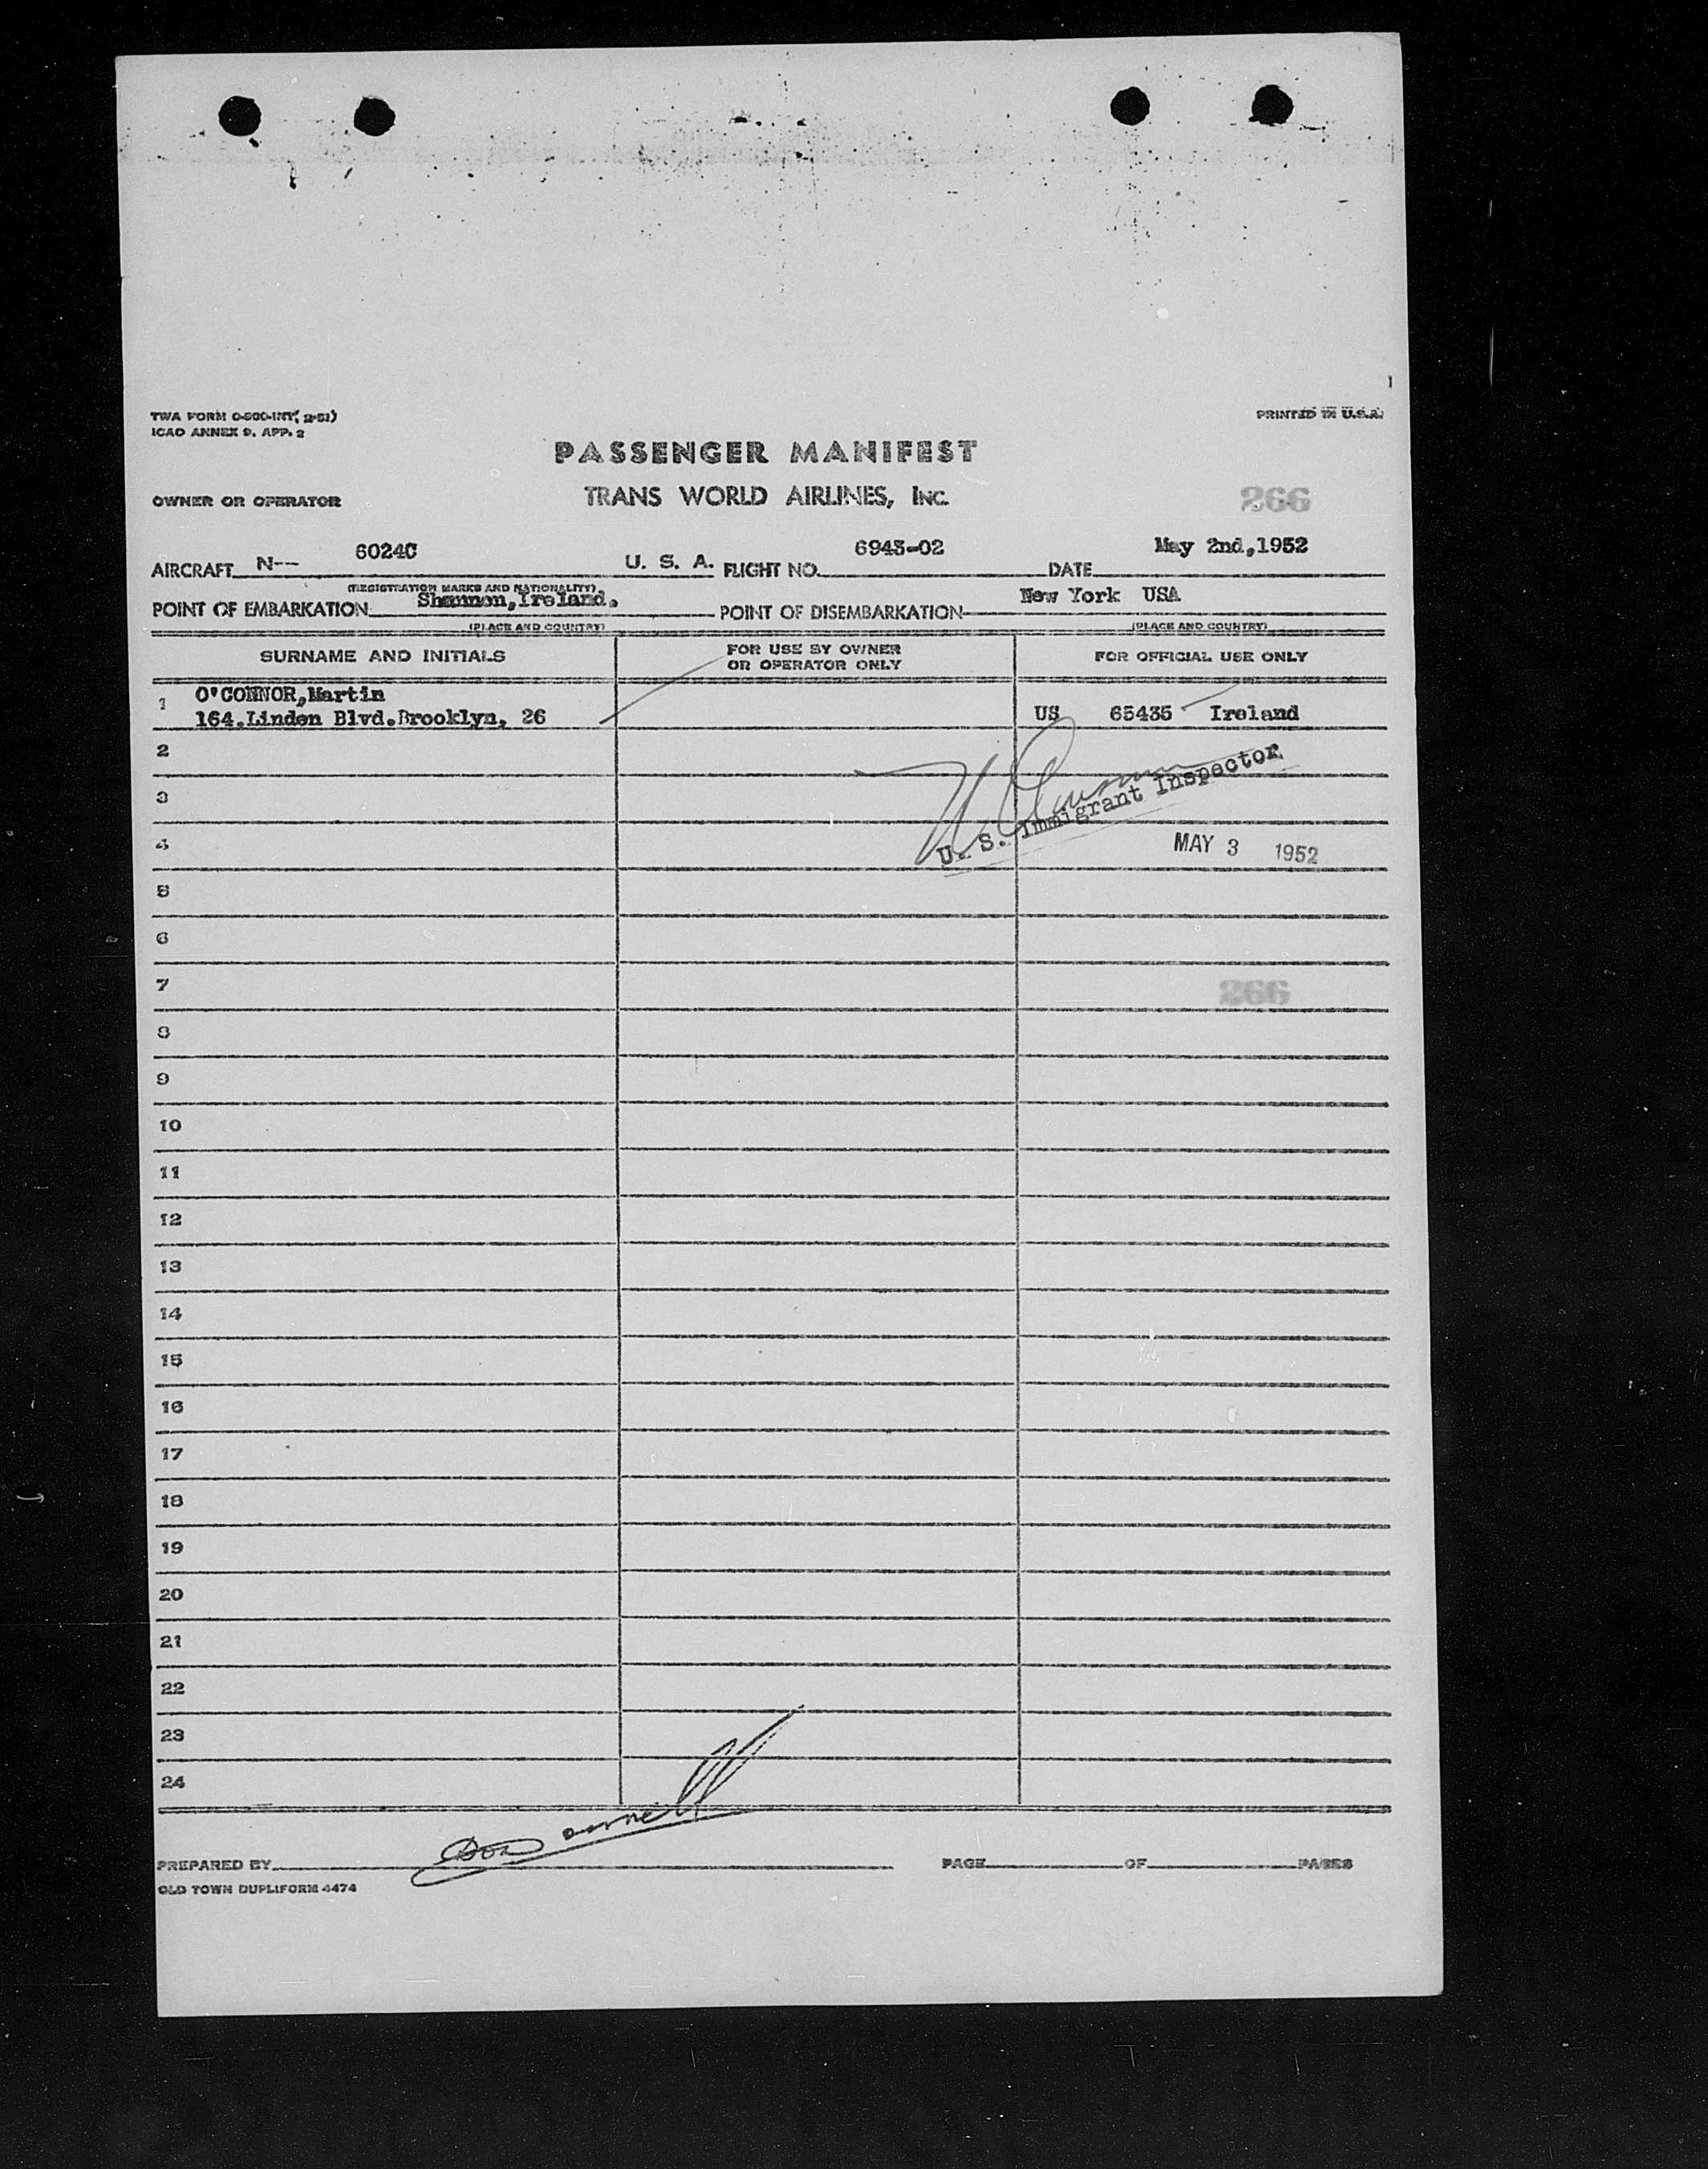 TWA FORM O-900-INT( 2-51)
ICAO ANNEX 9, APP. 2
PRINTED IN U.S.A.
PASSENGER MANIFEST
OWNER OR OPERATOR TRANS WORLD AIRLINES, INC. 266
AIRCRAFT N-- 6024C U. S. A. FLIGHT NO. 6943-02 DATE May 2nd,1952
(REGISTRATION MARKS AND NATIONALITY)
POINT OF EMBARKATION Shannon,Ireland. POINT OF DISEMBARKATION New York USA
(PLACE AND COUNTRY) (PLACE AND COUNTRY)
SURNAME AND INITIALS FOR USE BY OWNER OR OPERATOR ONLY FOR OFFICIAL USE ONLY
1 O'CONNOR,Martin
164.Linden Blvd.Brooklyn, 26 US 65435 Ireland
2
3
U. S. Immigrant Inspector
4 MAY 3 1952
5
6
7 266
8
9
10
11
12
13
14
15
16
17
18
19
20
21
22
23
24
PREPARED BY PAGE OF PAGES
OLD TOWN DUPLIFORM 4474